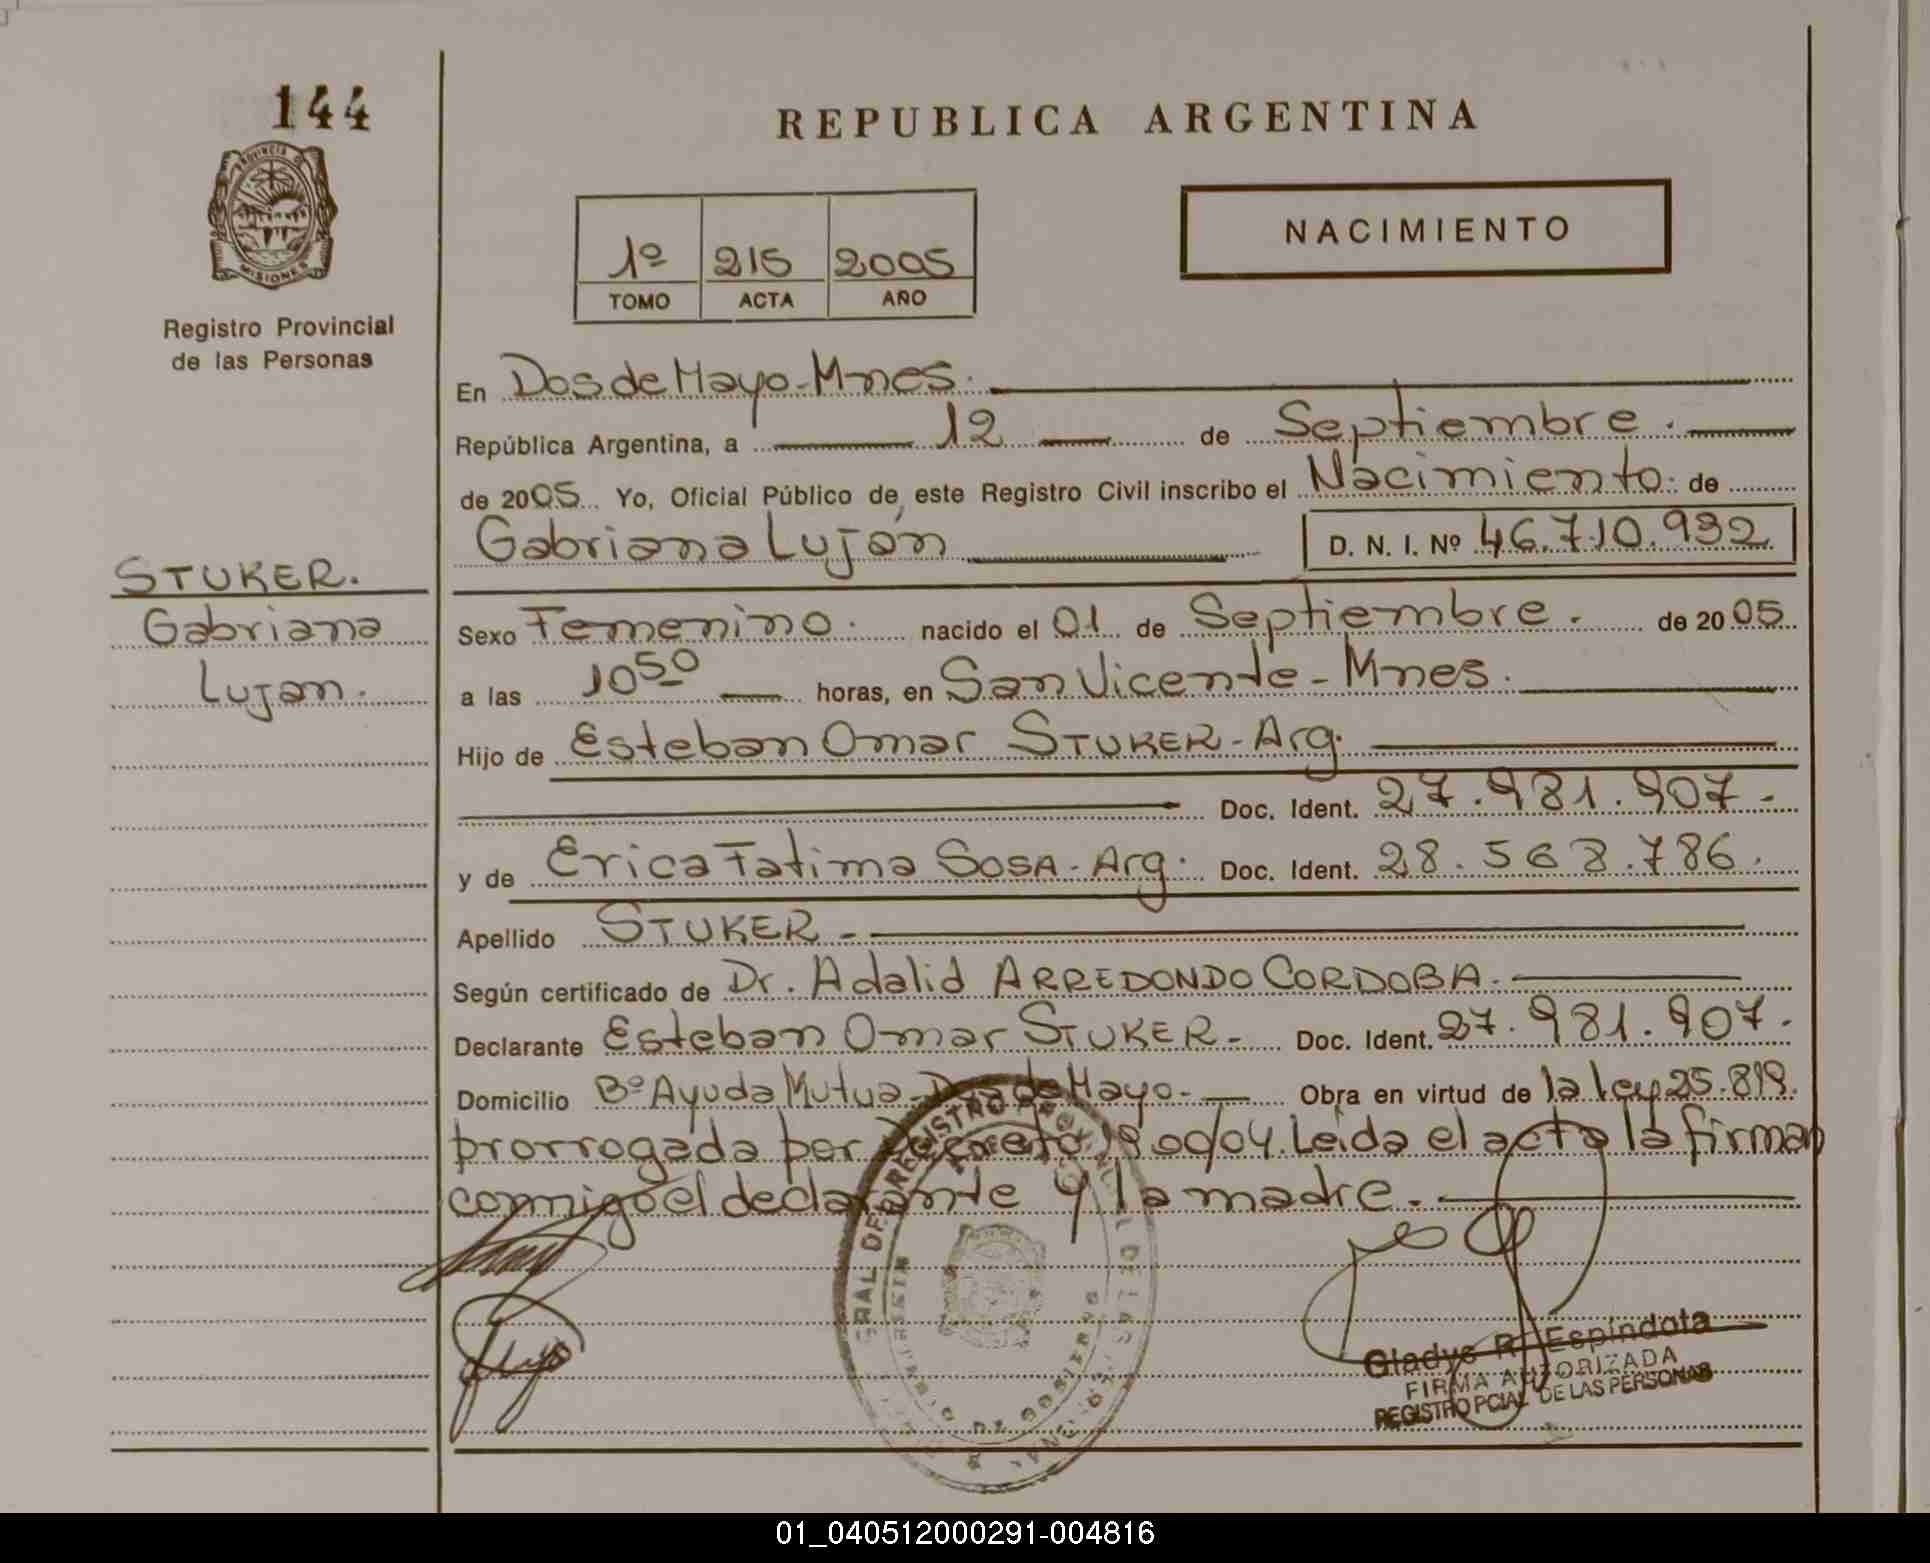 144
PROVINCIA DE
MISIONES
Registro Provincial
de las Personas
STUKER.
Gabriana
Lujan.
REPUBLICA ARGENTINA
1º 215 2005
TOMO ACTA AÑO
NACIMIENTO
En Dos de Mayo - Mnes.
República Argentina, a 12 de Septiembre.
de 2005 Yo, Oficial Público de este Registro Civil inscribo el Nacimiento. de
Gabriana Luján D. N. I. Nº 46.710.932
Sexo Femenino. nacido el 01 de Septiembre. de 2005
a las 10 50 horas, en San Vicente - Mnes.
Hijo de Esteban Omar STUKER - Arg.
Doc. Ident. 27.981.907-
y de Erica Fatima SOSA - Arg. Doc. Ident. 28.563.786.
Apellido STUKER -
Según certificado de Dr. Adalid ARREDONDO CORDOBA.
Declarante Esteban Omar STUKER - Doc. Ident. 27.981.907.
Domicilio Bº Ayuda Mutua - Dos de Mayo - Obra en virtud de la ley 25.819.
prorrogada por Decreto 1900/04. Leida el acta la firman
conmigo el declarante y la madre. -
Gladys R. Espindola
FIRMA AUTORIZADA
REGISTRO PCIAL DE LAS PERSONAS
01_040512000291-004816